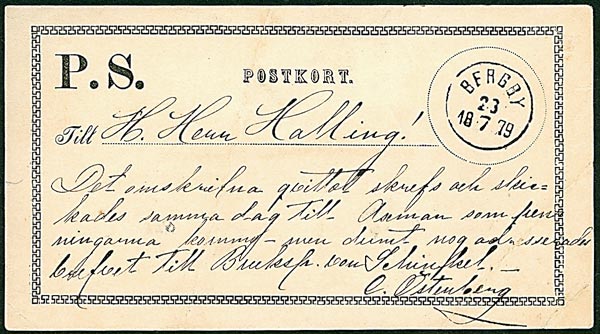 P. S.
POSTKORT.
BERGBY
23
18 7 79
Till H. Herr Halling!
Det omskrifna qvittot skrefs och skic-
kades samma dag till Åsman som pen-
ningarna kommo – men dumt nog adresserades
brefvet till Bruksp. von Schinkel. –
C. Östenberg